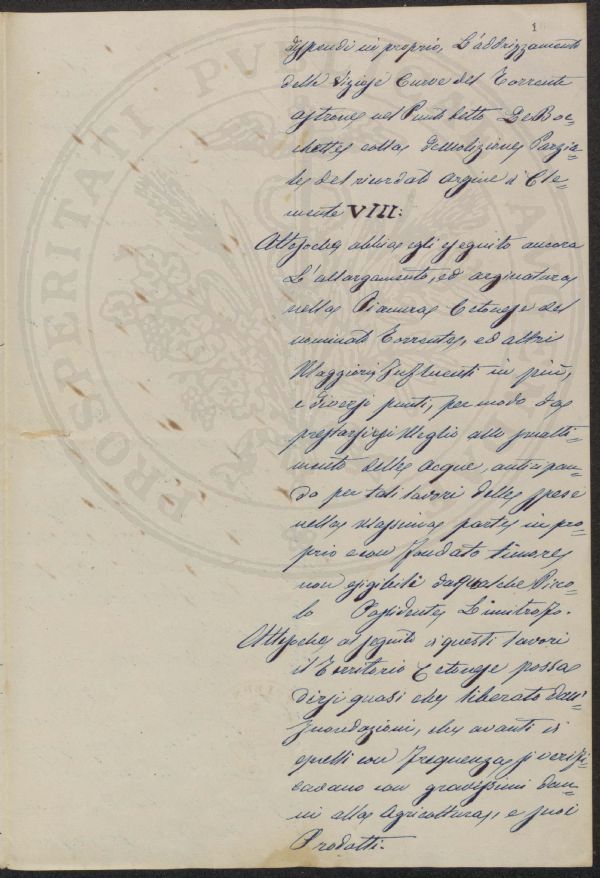 1
dispendi in proprio, L'addrizzamento
delle viziose Curve del Torrente
Astrone nel Punto detto Le Boc=
chette colla demolizione Parzia=
le del ricordato Argine di Cle=
mente VIII:
Attesoche abbia egli eseguito ancora
L'allargamento, ed arginatura
nella Pianura Cetonese del
nominato Torrente, ed altri
Maggiori Influenti in più,
e diversi punti, per modo da
prestarsi Meglio allo smalti=
mento delle Acque, anticipan=
do per tali lavori delle spese
nella Massima parte in pro=
prio e con fondato timore
non esigibili da qualche Picco=
lo Possidente Limitrofo.
Attesoche al seguito di questi lavori
il Territorio Cetonese possa
dirsi quasi che liberato dall'
Inondazioni, che avanti di
quelli con frequenza si verifi=
cavano con gravissimi dan=
ni alla Agricoltura, e suoi
Prodotti.
PROSPERITATI PUBL